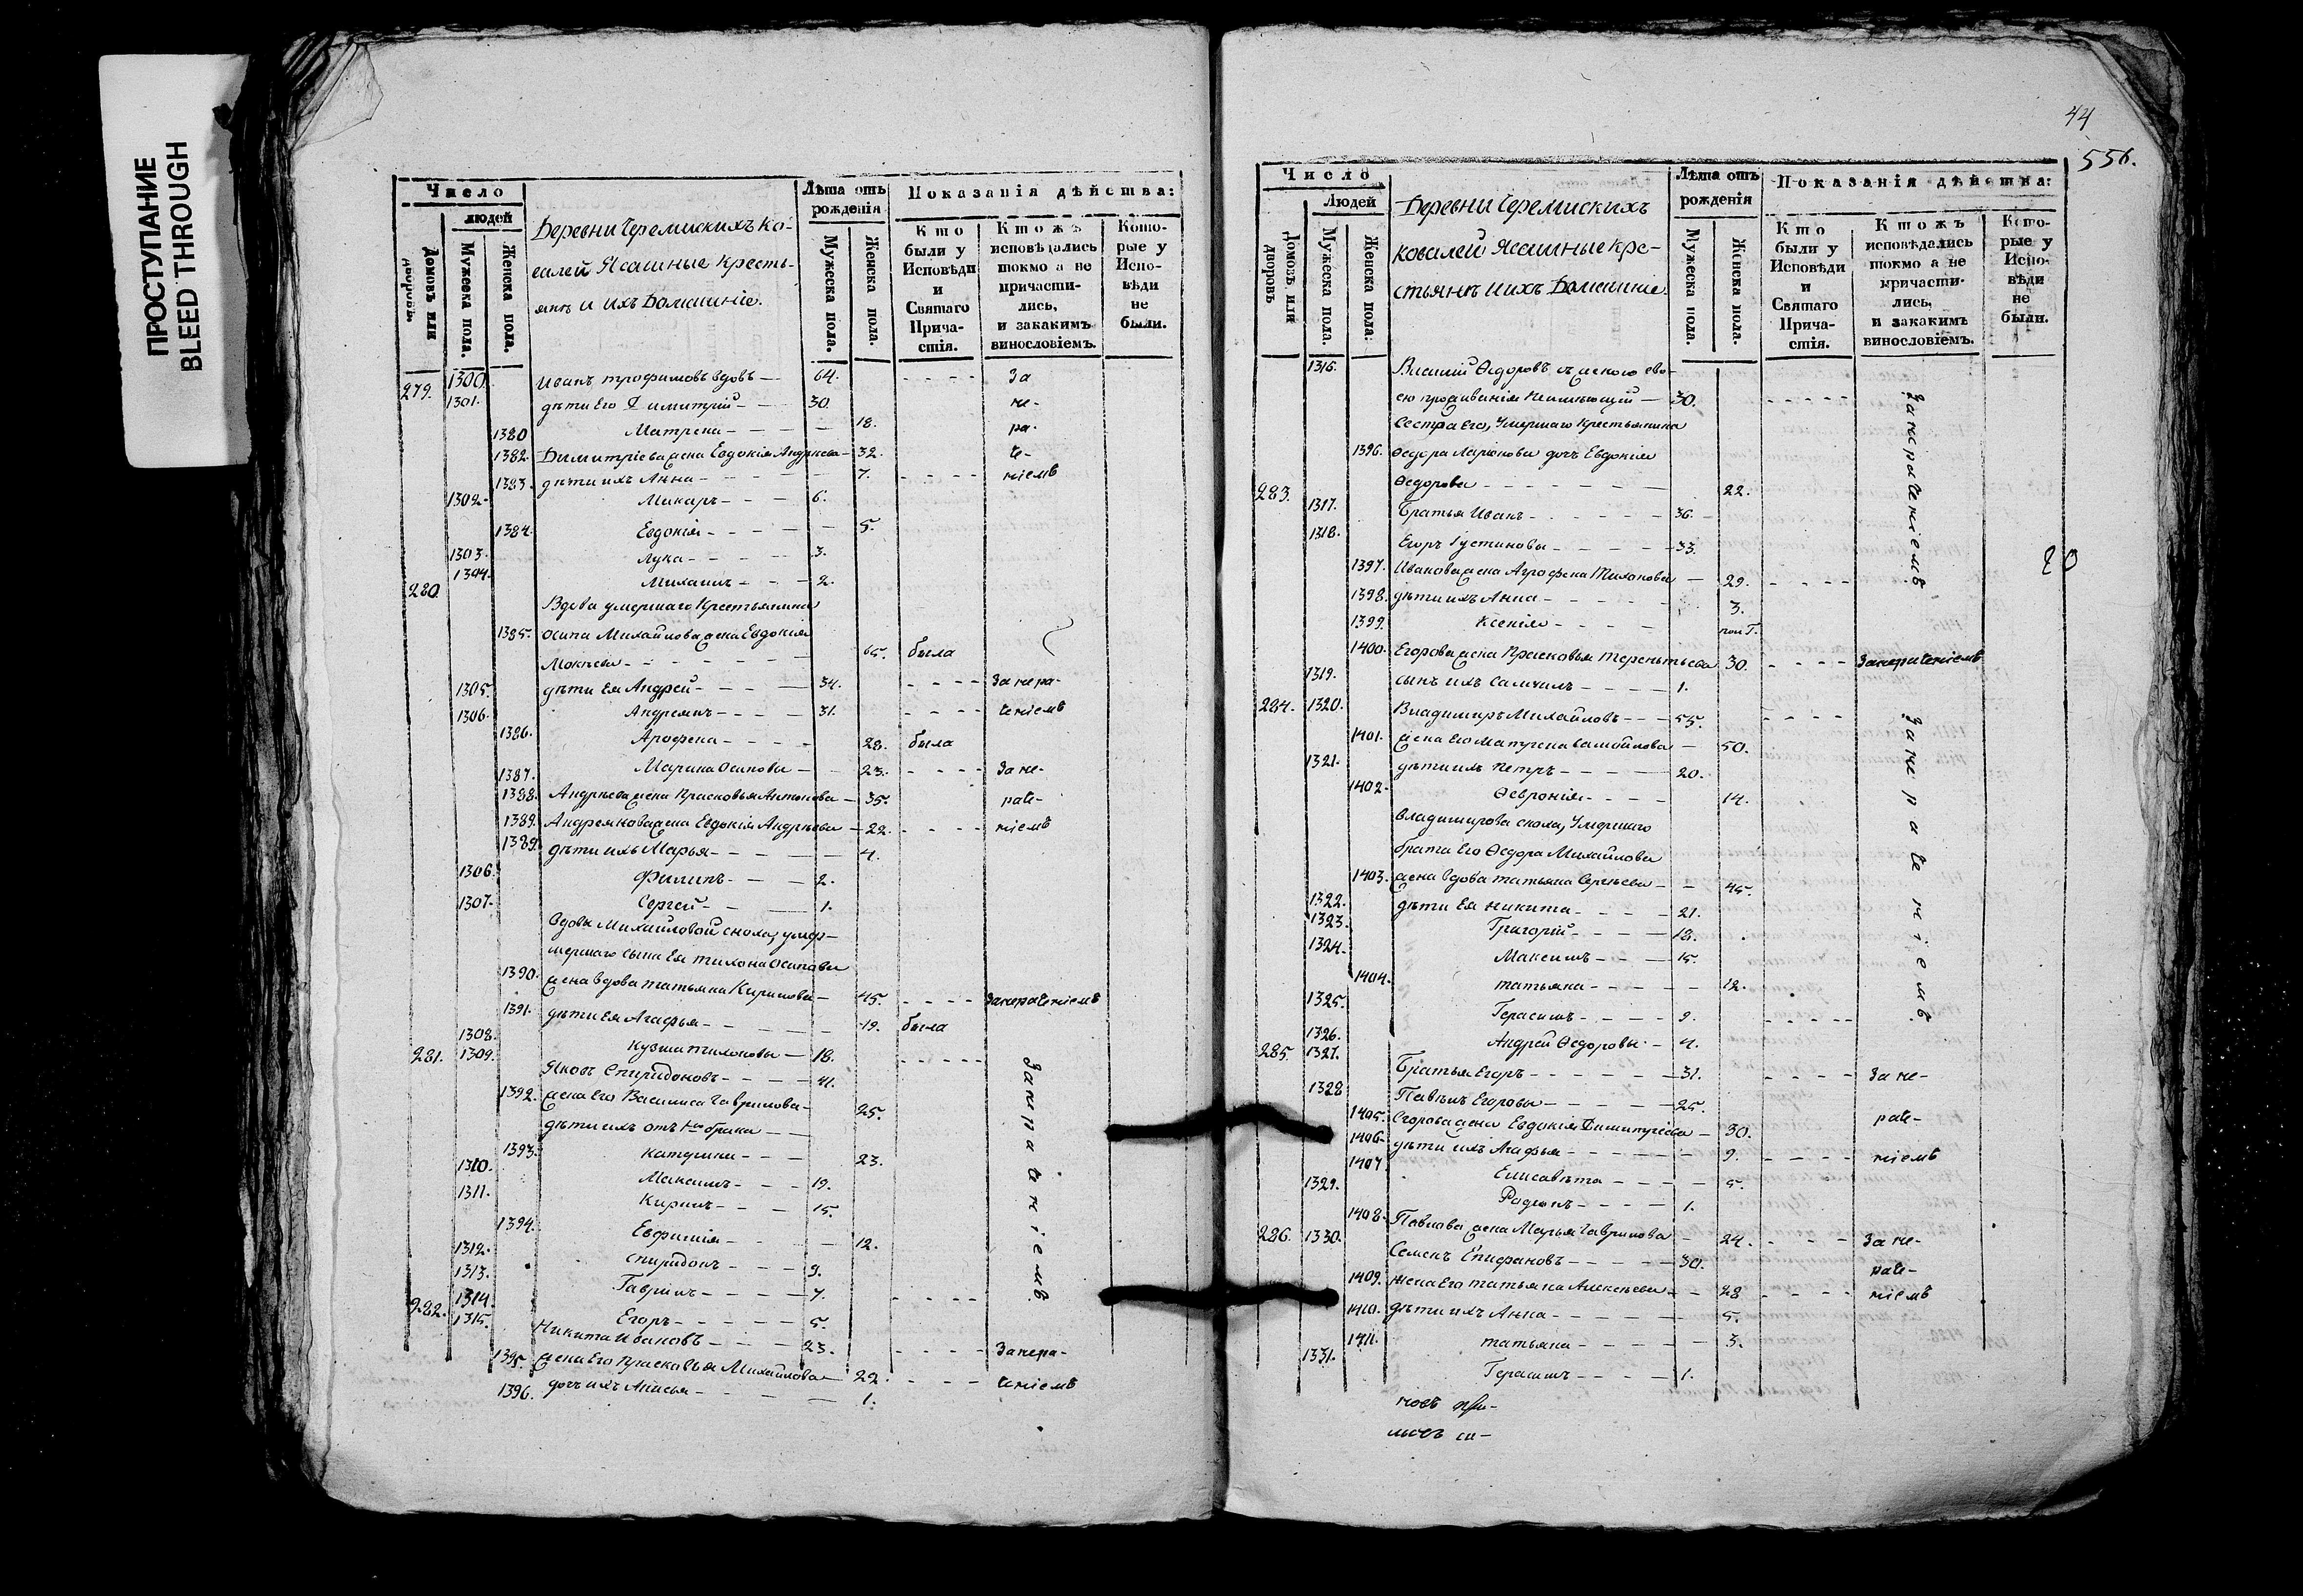 ПРОСТУПАНИЕ
BLEED THROUGH
Число
людей
Домовъ или дворовъ.
Мужеска пола.
Женска пола.
Деревни Черемискихъ Ко-
валей Ясашные кресть-
янъ и ихъ Домашніе.
Лѣта отъ рожденія
Мужеска пола.
Женска пола.
Показанія дѣйства:
Кто были у Исповѣди и Святаго Прича-стія.
Ктожъ исповѣдались токмо а не причасти-лись, и закакимъ винословіемъ.
Кото-рые у Испо-вѣди не были.
279. 1300. Иванъ трофимовъ вдовъ — 64. - - - - За
1301. дѣти Его Димитрій - — 30. не-
1380 Матрена - - - - — 18. ра-
1382. Димитріева жена Евдокія Андреева — 32. че-
1383. дѣти ихъ Анна - - - - - 7. - - - - ніемъ
1302. Макаръ - - - 6.
1384. Евдокія - - - - 5.
1303. Лука - - - - 3.
280. 1304. Михаилъ - - - 2.
Вдова умершаго Крестьянина
1385. Осипа Михайлова жена Евдокія
Мокеева - - - - - - 65. была
1305. дѣти Ея Андрей - - - — 34. - - - - За нера-
1306. Андреянъ - - - — 31. - - - - ченіемъ
1386. Арофена - - - - 28. была
1387. Марина Осиповы — 23. - - - - За не-
1388. Андреева жена Прасковья Антонова — 35. раче-
1389. Андреянова жена Евдокія Андреева — 22. - - - - ніемъ
1389. дѣти ихъ Марья - - - - — 4.
1306. Филипъ - - - — 2.
1307. Сергей - - - — 1.
Вдовы Михайловой сноха, умер-
мершаго сына Ея тихона Осипова
1390. жена вдова татьяна Кирилова — 45. - - - - Занераченіемъ
1391. дѣти Ея Агафья - - - - - 19. была
1308. Кузма тихоновы — 18. - - - - -
281. 1309. Яковъ Спиридоновъ - - - — 41.
1392. жена Его Василиса Гаврилова - 25. Занераченіемъ.
дѣти ихъ отъ 1го брака —
1393. Катерина - - - 23.
1310. Максимъ - - - 19.
1311. Кирилъ - - — 15.
1394. Евфимія - - - - — 12.
1312. Спиридонъ - - - 9.
1313. Гаврилъ - - - - 7.
1314. Егоръ - - - - - 5. - - - -
282. 1315. Никита Ивановъ - - - — 23. - - - - Занера-
1395. жена Его Прасковья Михайлова — 22. - - - ченіемъ
1396. дочь ихъ Анисья - - - - — 1.
44
556.
Число
Людей
Домовъ или дворовъ
Мужеска пола.
Женска пола:
Деревни Черемискихъ
Ковалей Ясашные кре-
стьянъ и ихъ Домашніе.
Лѣта отъ рожденія
Мужеска пола.
Женска пола.
Показанія дѣйства:
Кто были у Исповѣди и Святаго Прича-стія.
Ктожъ исповѣдались токмо а не причасти-лись, и закакимъ винословіемъ.
Кото-рые у Испо-вѣди не были.
1316. Василій Ѳедоровъ съ женою сво-
ею проживанія неимѣющій — 30. - - - - - Занераченіемъ
Сестра Его, Умершаго Крестьянина
1396. Ѳедора Ларіонова дочь Евдокія
Ѳедорова - - - - - - — 22.
283. 1317. Братья Иванъ - - - - - - 36.
1318. Егоръ Густиновы - - - - - 33.
1397. Иванова жена Агрофена Тихонова — 29. - - - -
1398. дѣти ихъ Анна - - - - - - 3.
1399. Ксенія - - - - пол Г.
1400. Егорова жена Прасковья терентьева 30. - - - - Занераченіемъ
1319. сынъ ихъ Самоилъ - - - - 1.
284. 1320. Владимиръ Михайловъ - - - 55. - - - - Занераченіемъ.
1401. жена Его Матрена Самойлова — 50.
1321. дѣти ихъ Петръ - - - - — 20.
1402. Ѳевронія - - - - 14.
Владимирова сноха, Умершаго
брата Его Ѳедора Михайлова
1403. жена вдова татьяна Сергеева - - 45.
1322. дѣти Ея Никита - - - - 21.
1323. Григорій - - - - 18.
1324. Максимъ - - - 15.
1404. татьяна - - - - — 12.
1325. Герасимъ - - - - 9. - - - - -
1326. Андрей Ѳедоровы - — 4.
285. 1327. Братья Егоръ - - - - - - 31. - - - - За не-
1328 Павелъ Егоровы — - - - 25.
1405. Егорова жена Евдокія Димитріева — 30. раче-
1406. дѣти ихъ Агафья - - - - - 9. - - - - ніемъ
1407. Елисавѣта - - - - 5.
1329. Радіонъ - - - - 1.
1408. Павлова жена Марья Гаврилова — 24. - - - За не-
286. 1330. Семенъ Епифановъ - - - - - 30. раче-
1409. жена Его татьяна Алексеева - - 28 - - - - ніемъ
1410. дѣти ихъ Анна - - - - - - 5.
1411. татьяна - - - - - 3.
1331. Герасимъ - - - - 1.